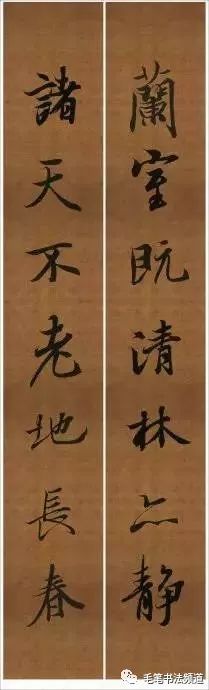 蘭室既清林亦静
諸天不老地長春
毛笔书法频道